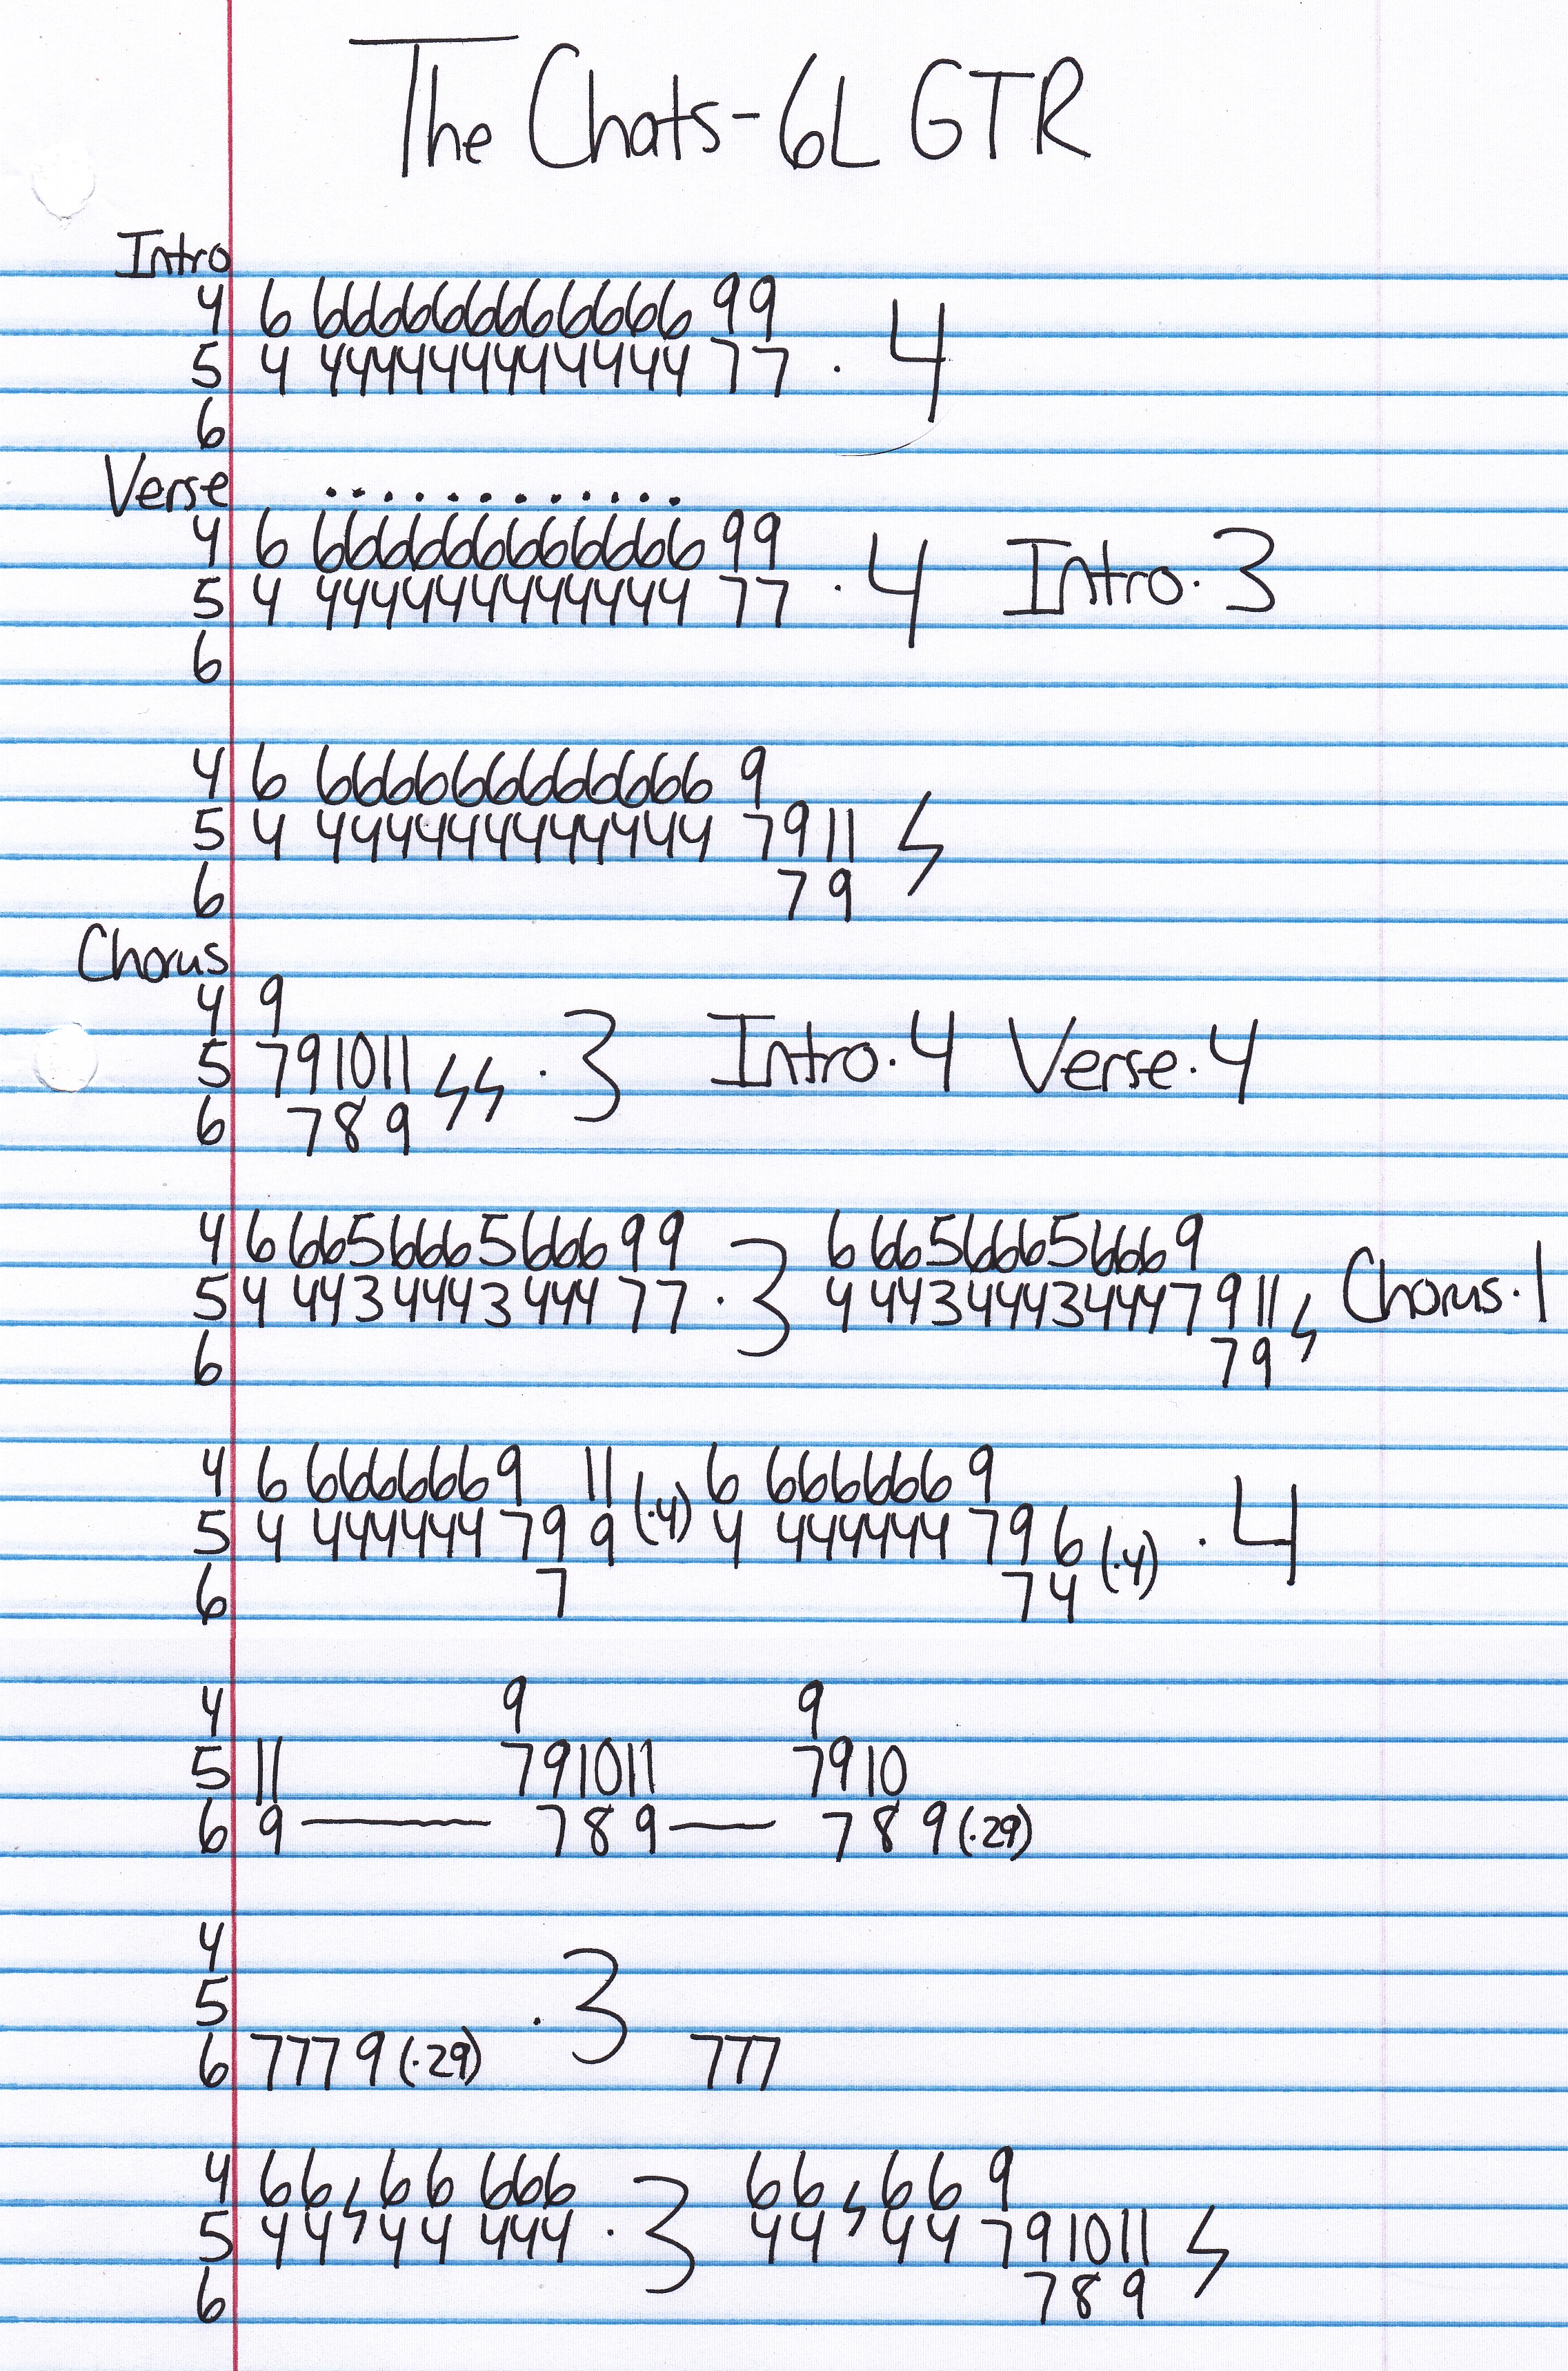 The Chats - 6L GTR
Intro
4 6 666666666666 99
5 4 444444444444 77 · 4
6
Verse
4 6 666666666666 99
5 4 444444444444 77 · 4 Intro · 3
6
4 6 666666666666 9
5 4 444444444444 7 9 11
6 7 9
Chorus
4 9
5 7 9 10 11 · 3 Intro · 4 Verse · 4
6 7 8 9
4 6 66566656669 9 6 66566656669
5 4 44344434447 7 · 3 4 44344434447 9 11 Chorus · 1
6 7 9
4 6 666666 9 11 6 666666 9
5 4 444444 7 9 9 (·4) 4 444444 7 9 6 (·4) · 4
6 7 7 4
4 9 9
5 11 7 9 10 11 7 9 10
6 9 — 7 8 9 — 7 8 9 (·29)
4
5 · 3
6 7 7 7 9 (·29) 777
4 66 66 666 66 66 9
5 44 44 444 · 3 44 44 7 9 10 11
6 7 8 9